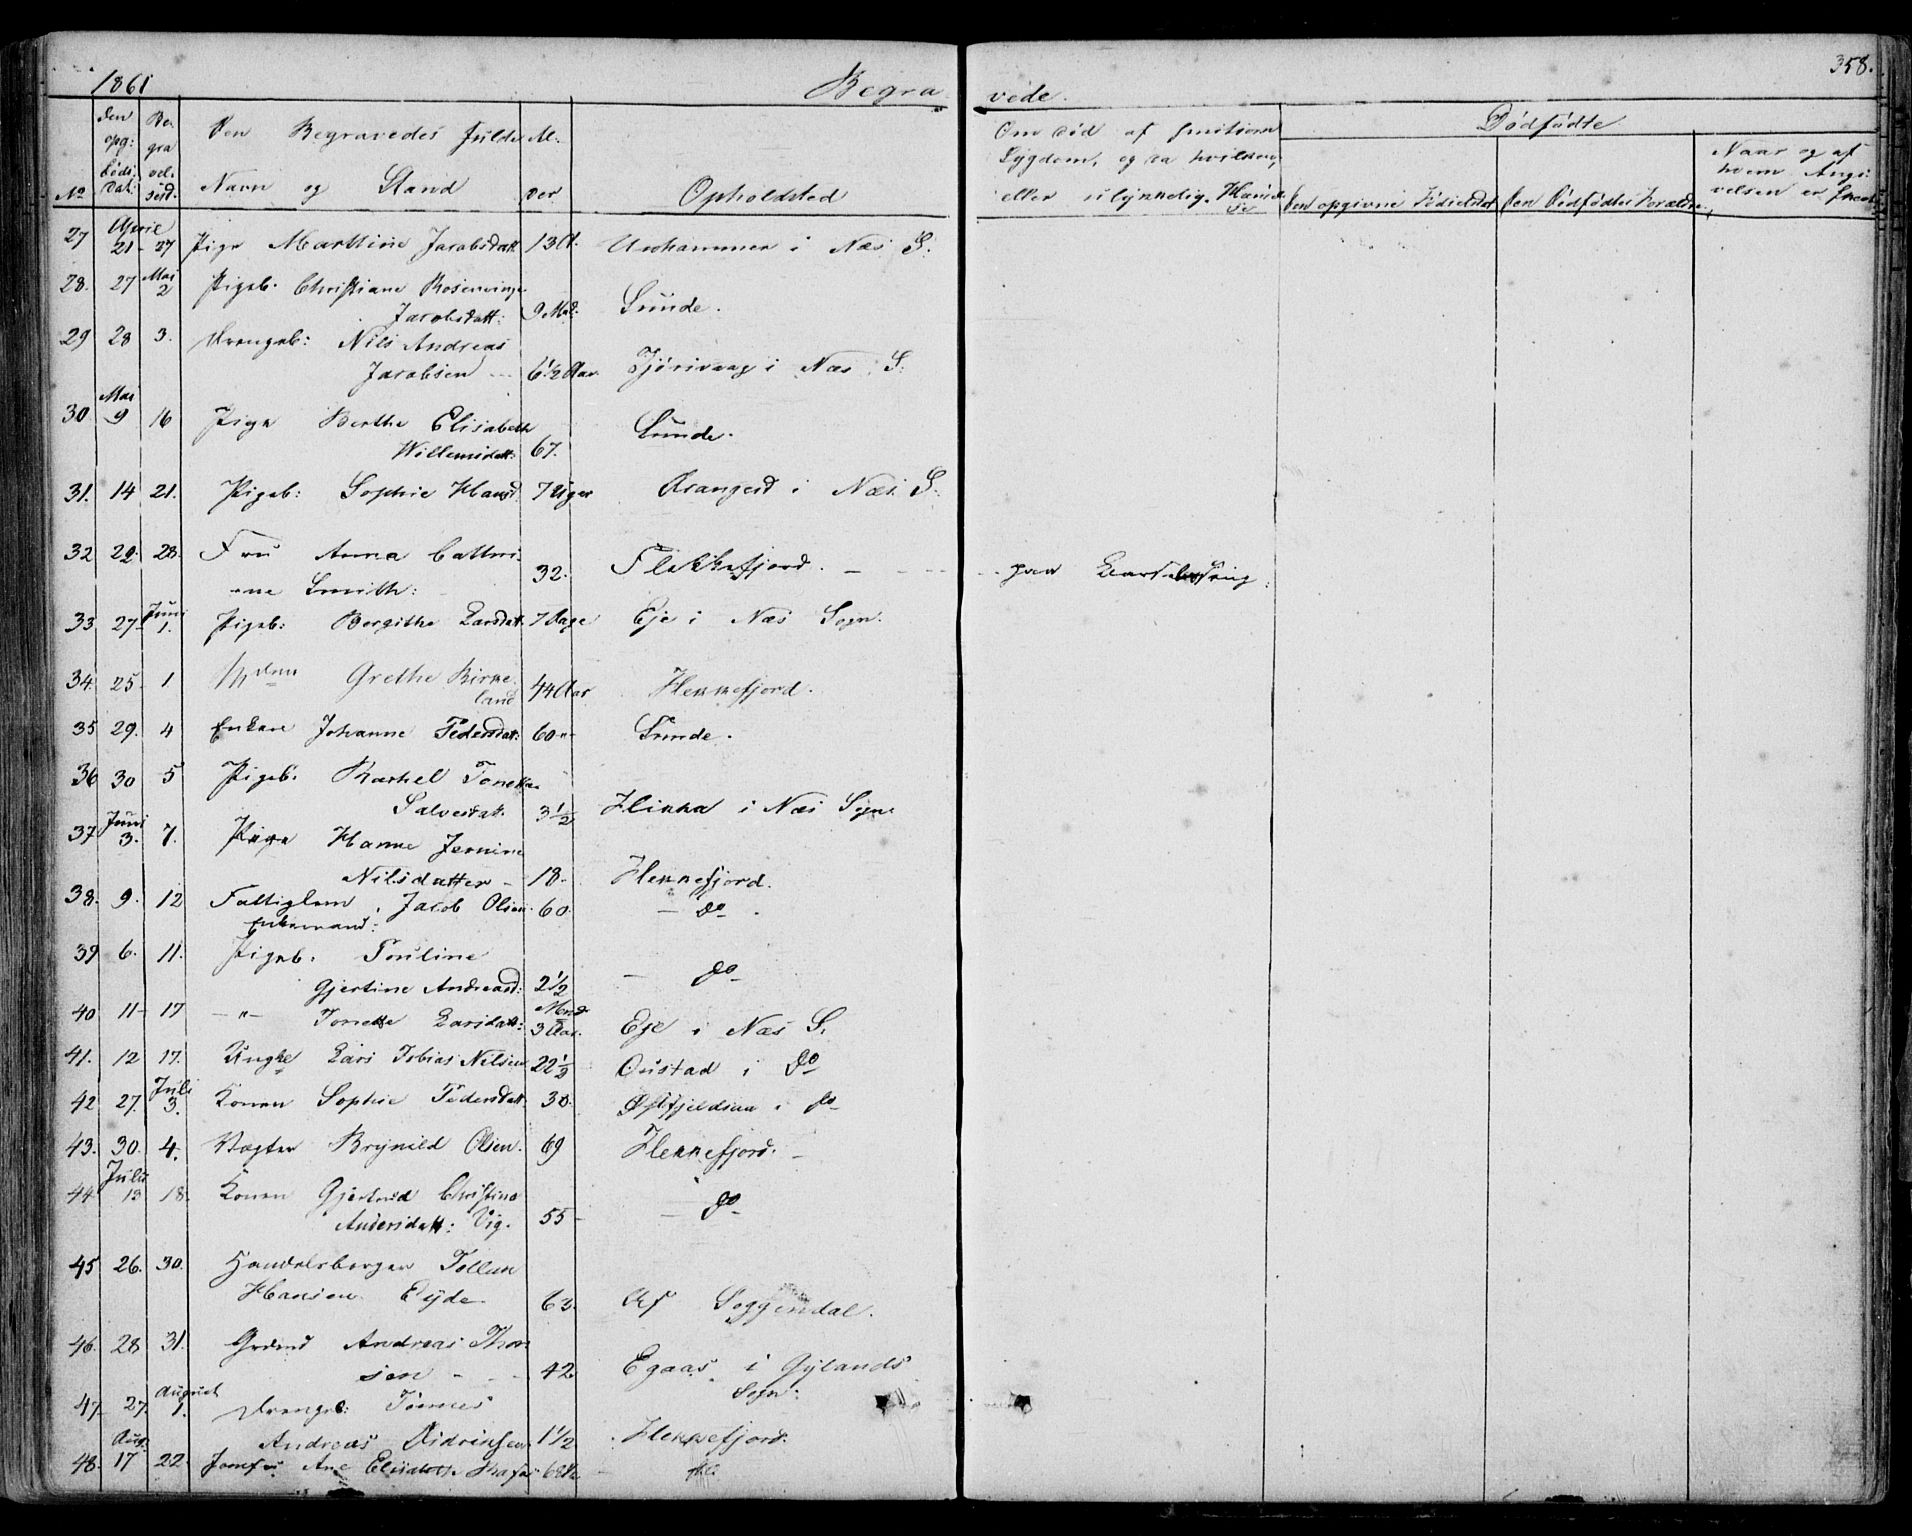 1861
Begravede.
358.
No
Den opg: Døds Dat:
Begravelsesd.
Den Begravedes fulde Navn og Stand
Alder
Opholdsted
Om død af smitsom Sygdom, og da hvilken, eller ulykkelig Hændelse
Dødfødte
Den opgivne Fødselsdat
Den Dødfødtes Forældre
Naar og af hvem
27 April 21 - 27 Pige Marthine Jacobsdatt 13 A. i Næs S:
28. 27 Mai 2 Pigeb. Christiane Rosenvinge Jacobsdatt: 9 Md: Sunde.
29 28 3. Drengeb: Nils Andreas Jacobsen 6½ Aar Fjørivaag i Næs S:
30 Mai 9 16 Pige Berthe Elisabeth Willemsdatt: 67. Sunde.
31. 14 21. Pigeb: Sophie Hansd. 7 Uger i Næs S:
32 22. 28. Fru Anna Cathrine Smith: 32. Flekkefjord. - paa Barselseng.
33 27 Juni 1. Pigeb: Bergithe Larsdat. 7 Dage Eje i Næs Sogn.
34. 25. 1 Mdm Grethe Birkeland 44 Aar Flekkefjord.
35 29. 4 Enken Johanne Pedersdatt: 60 " Sunde.
36 30 5 Pigeb. Rachel Tonette Salvesdatt. 3½ Flikka i Næs Sogn
37 Juni 3. 7. Pige Hanne Jernine Nilsdatter - 18. Flekkefjord.
38. 9. 12 Fattiglem, Enkemand: Jacob Olsen 60. - do -
39 6. 11. Pigeb. Pouline Gjertine Andreasd: 2½ Mnd - do -
40 11 - 17 - " - Tonette Larsdatt: 3 Aar. Eje i Næs S:
41. 12 17. Ungk Lars Tobias Nilsen 22½ Oustad i do
42 27. Juli 3. Konen Sophie Pedersdatt. 30. i do -
43. 30. 4. Vægter Brynild Olsen. 69 Flekkefjord. -
44. Juli 13 18. Konen Gjertrud Christine Andersdatt: Vig. 55 - - do -
45 26. 30. Handelsborger Tollun Hansen Eyde 63. Af Soggendal.
46. 28 31. Grdmd Andreas Thorsen - 42 Egaas i Gylands Sogn:
47. 27. August 1. Drengeb: Tønnes Andreas Didriksen 1½ Flekkefjord.
48. Aug. 17 22. Jomfr. Ane Elisabeth